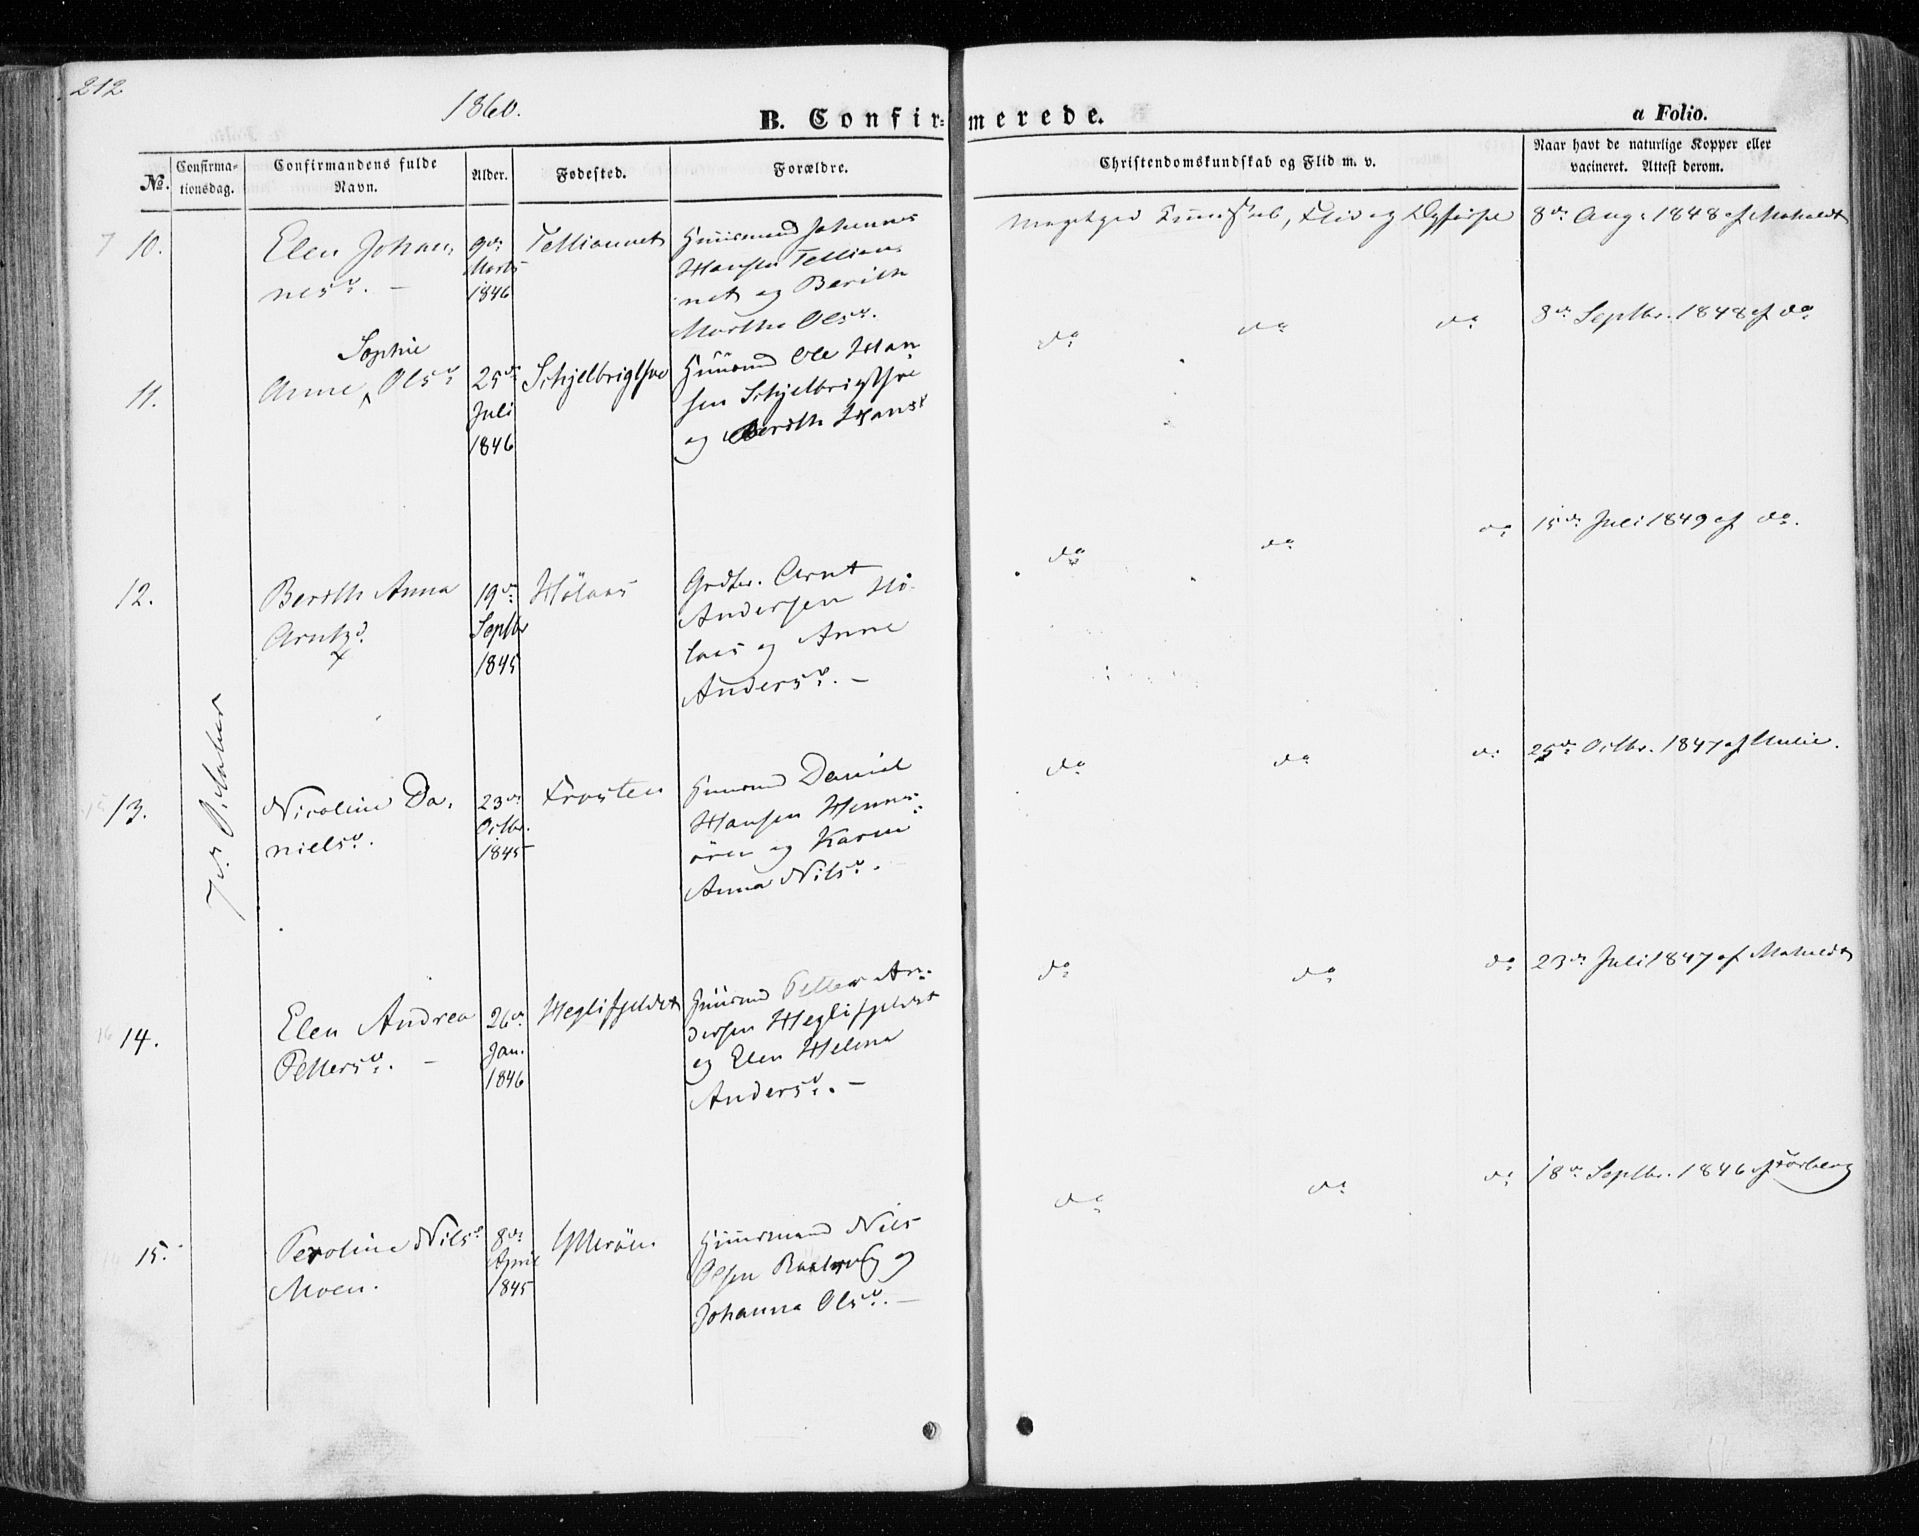 212
1860.
B. Confirmerede.
a Folio.
No.
Confirma-
tionsdag.
Confirmandens fulde
Navn.
Alder.
Fødested.
Forældre.
Christendomskundskab og Flid m. v.
Naar havt de naturlige Kopper eller
vacineret. Attest derom.
7de October
10.
Elen Johan-
nesd.
9de
Marts
1846
Husmand Johannes
Hansen
net og Berith
Martha Olsd.
Meget god Kundskab, Flid og
8de Aug. 1848 af
11.
Sophie
Anne Olsd.
25de
Juli
1846
Husmd Ole Han
sen
og Berith Hansd
do do do
8de Septbr. 1848 af do
12.
Berith Anna
Arntzd.
19de
Septbr
1845
Hølaas
Grdbr. Arnt
Andersen Hø-
laas og Anne
Andersd. -
do do do
15de Juli 1849 af do.
13.
Nicoline Da-
nielsd.
23de
Octbr.
1845
Frosten
Husmd Daniel
Hansen
og Karen
Anna Nilsd.
do do do
25de Octbr. 1847 af
14.
Elen Andrea
Pettersd. -
26de
Jan.
1846
Heglisfjeldet
Husmd Petter An-
dersen Heglisfjeldet
og Elen Helena
Andersd. -
do do do
23de Juli 1847 af
15.
Peroline Nilsd
Moen.
8de
April
1845
Ytterøen
Husmand Nils
Olsen og
Johanna Olsd. -
do do do
18de Septbr. 1846 af